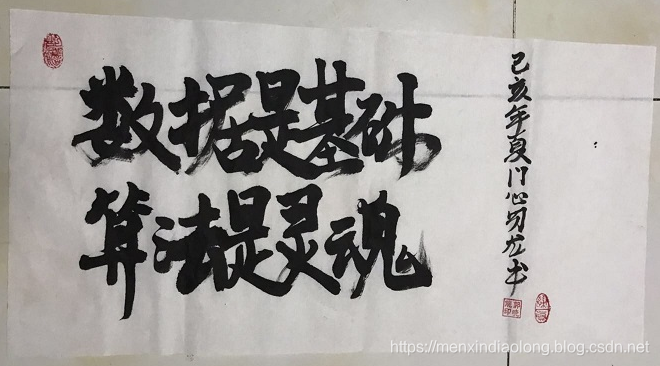 数据是基础
算法是灵魂
己亥年夏门心刁龙书
https://menxindiaolong.blog.csdn.net